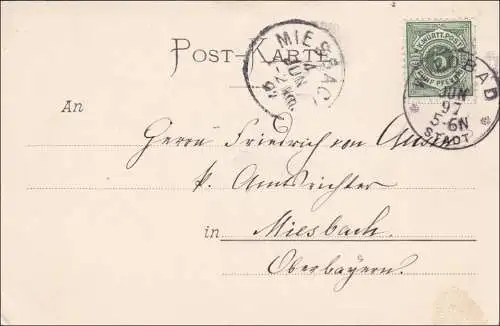 MIESBACH
JUN
K. WÜRTT. POST
5
FÜNF PFENNIG
WILDBAD
JUN
97
5-6N
STADT
POST-KARTE
An
Herrn Friedrich von
k. Amtsrichter
in Miesbach.
Oberbayern.